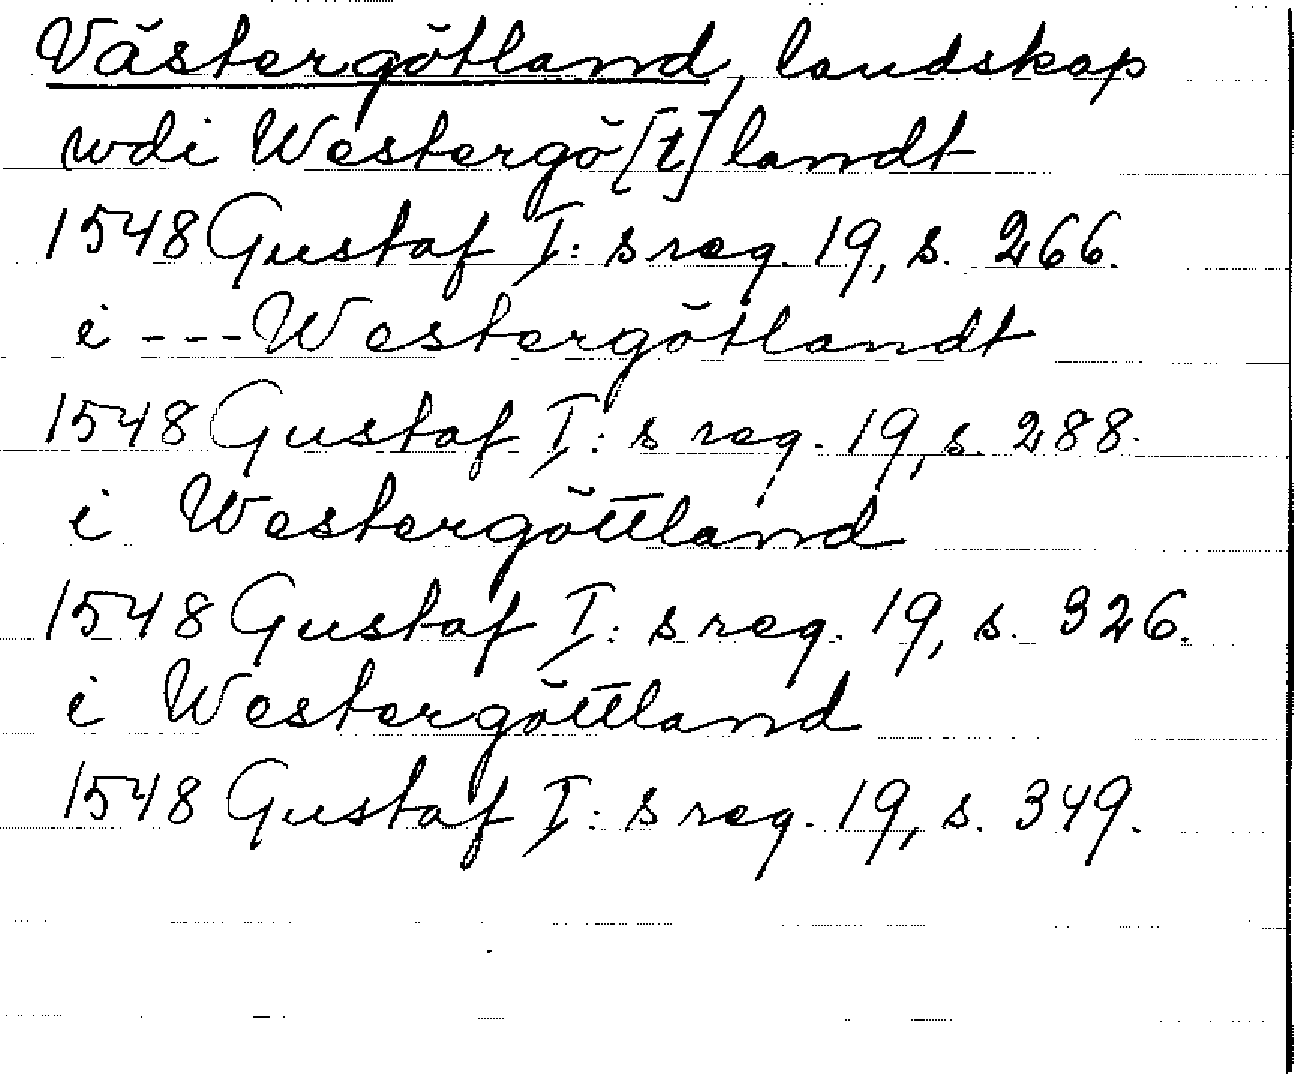 Västergötland, landskap
wdi Westergö[t]landt
1548 Gustaf I:s reg. 19, s. 266.
i --- Westergötlandt
1548 Gustaf I:s reg. 19, s. 288.
i Westergöttland
1548 Gustaf I:s reg. 19, s. 326.
i Westergöttland
1548 Gustaf I:s reg. 19, s. 349.